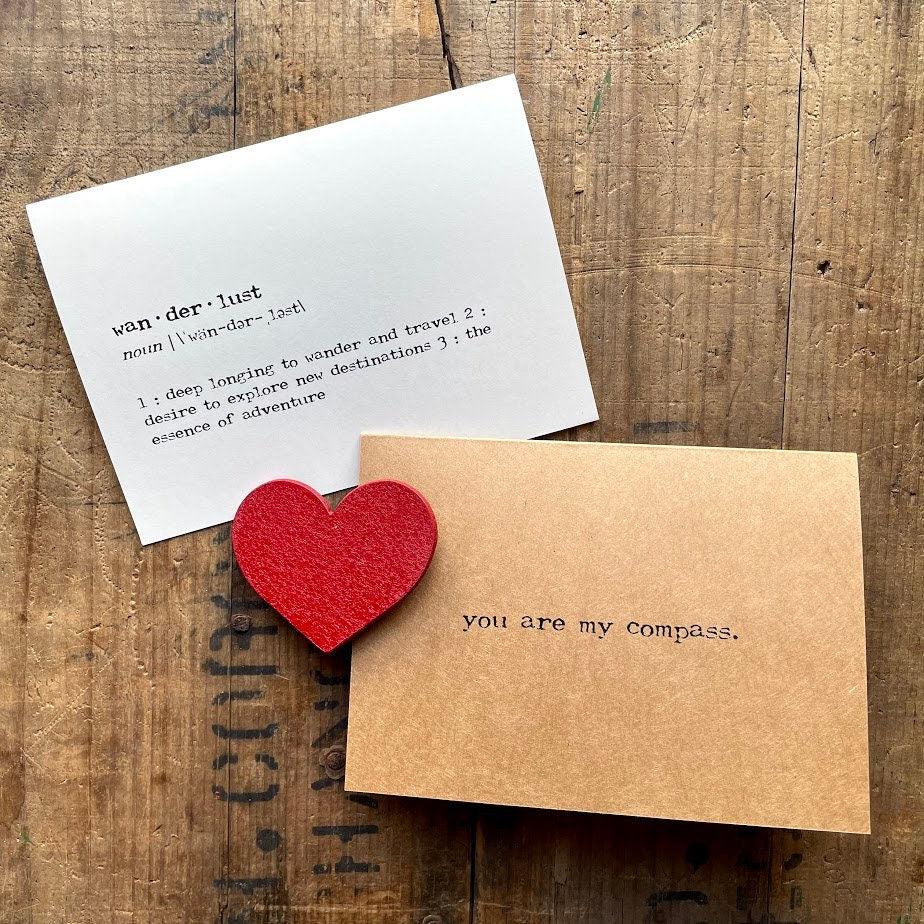 wan·der·lust
noun |\ˈwän-dər-ˌləst\
1 : deep longing to wander and travel 2 :
desire to explore new destinations 3 : the
essence of adventure
you are my compass.